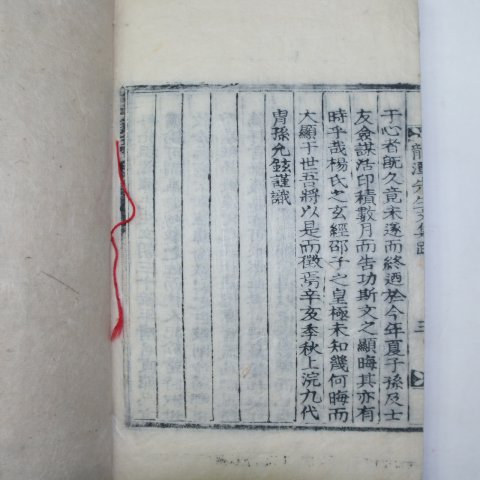 于心者旣久竟未遂而終迺於今年夏子孫及士
友僉謀活印積數月而告功斯文之顯晦其亦有
時乎哉楊氏之玄經邵子之皇極未知幾何晦而
大顯于世吾將以是而徵焉辛亥季秋上浣九代
冑孫允鉉謹識